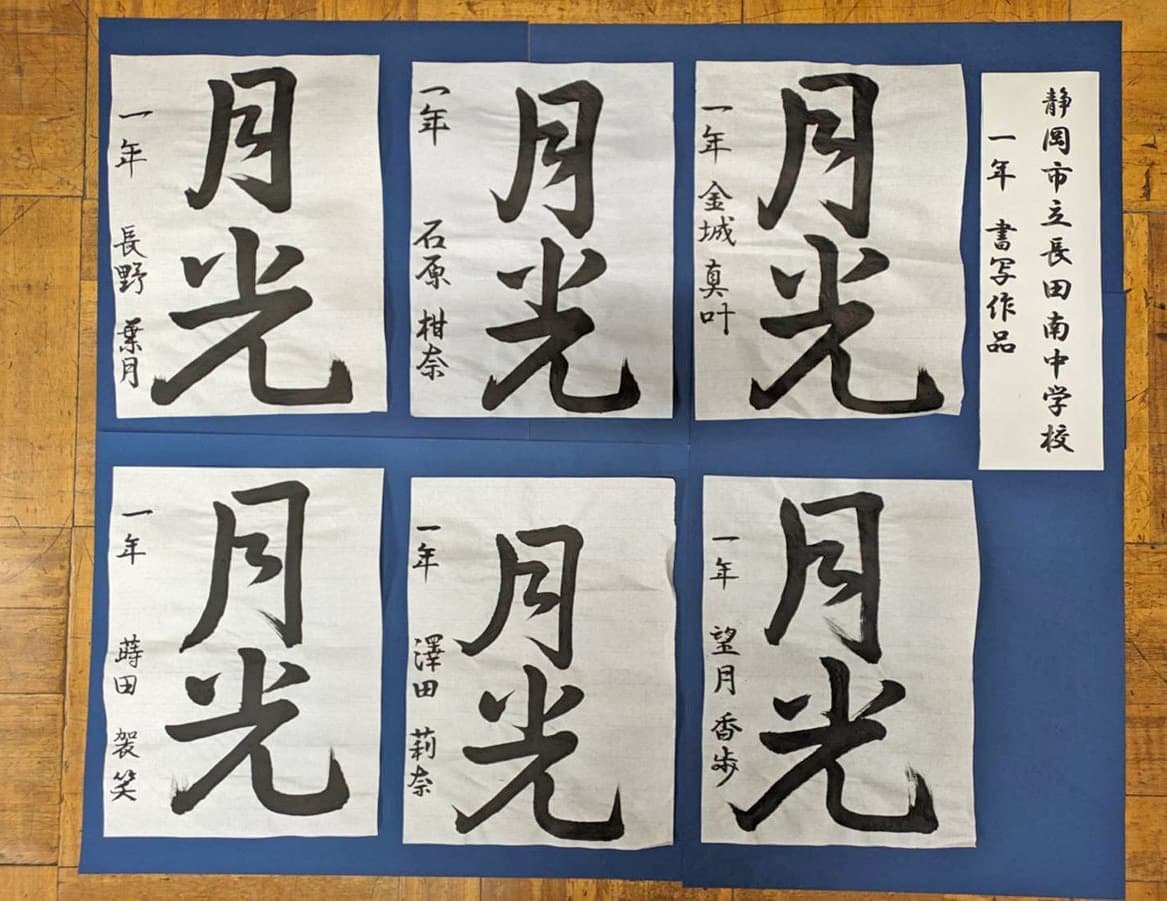 静岡市立長田南中学校
一年 書写作品
月光
一年 金城 真叶
月光
一年 石原 柑奈
月光
一年 長野 葉月
月光
一年 望月 香歩
月光
一年 澤田 莉奈
月光
一年 蒔田 袈笑